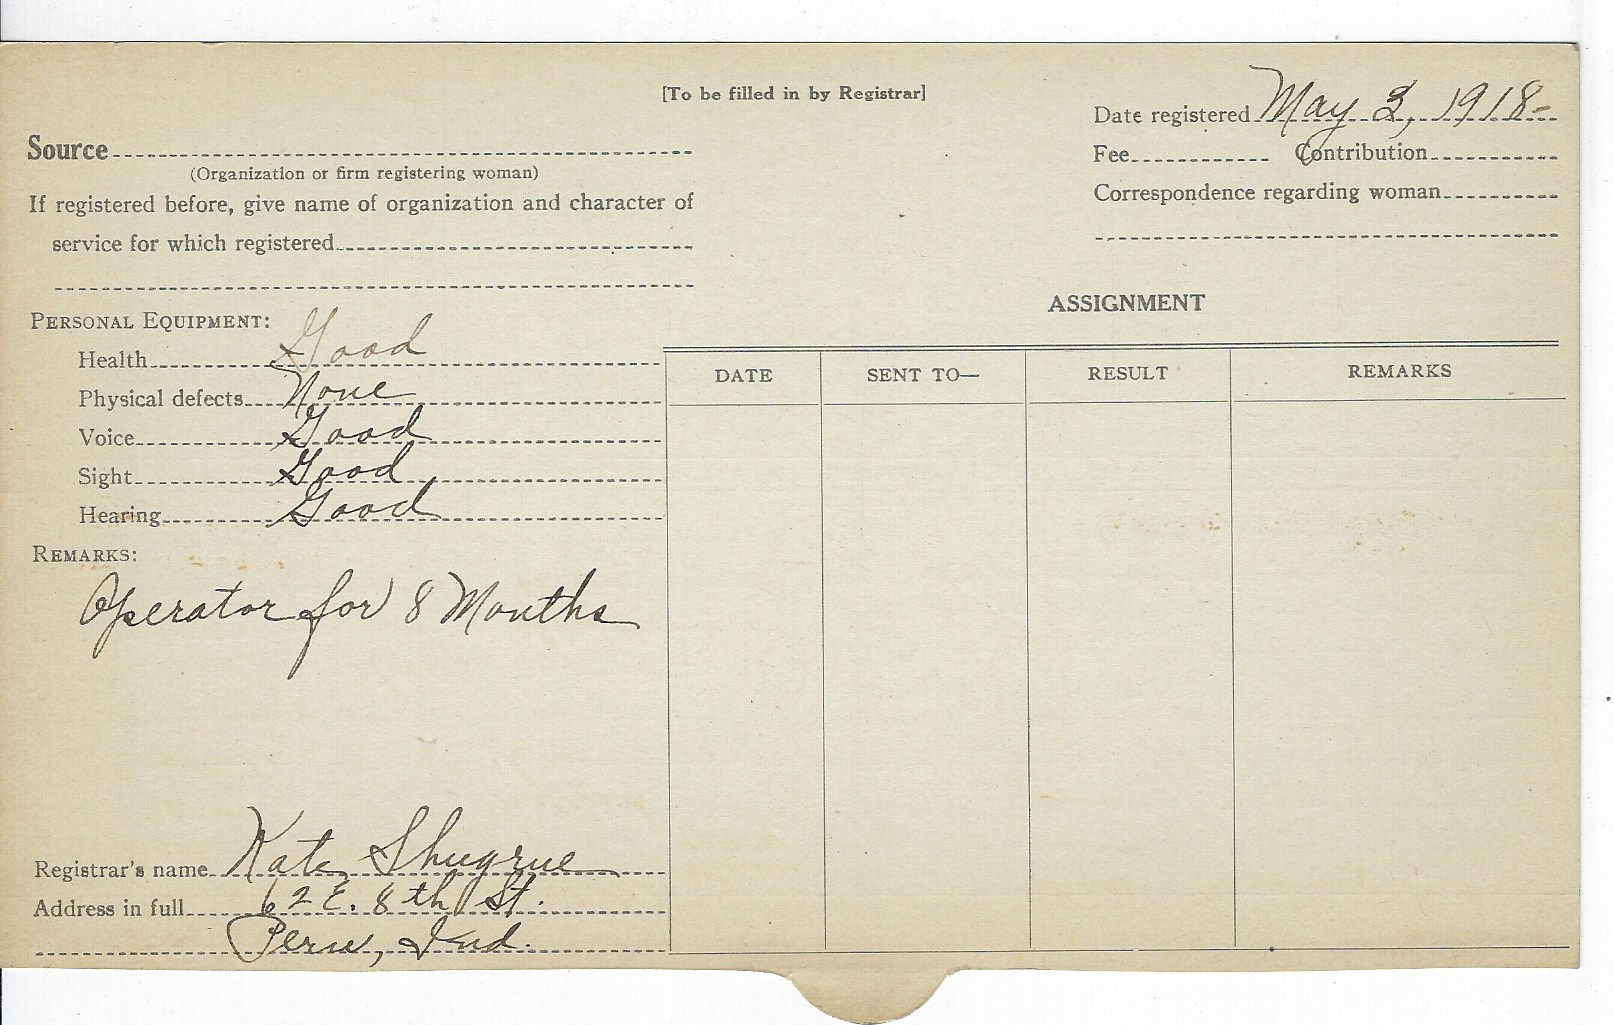 [To be filled in by Registrar]
Source
(Organization or firm registering woman)
If registered before, give name of organization and character of
service for which registered
Personal Equipment:
Health Good
Physical defects None
Voice Good
Sight Good
Hearing Good
Remarks:
Operator for 8 Months
Registrar's name Kate Shugrue
Address in full 62 E. 8th St.
Peru, Ind.
Date registered May 3, 1918-
Fee Contribution
Correspondence regarding woman
ASSIGNMENT
DATE SENT TO— RESULT REMARKS